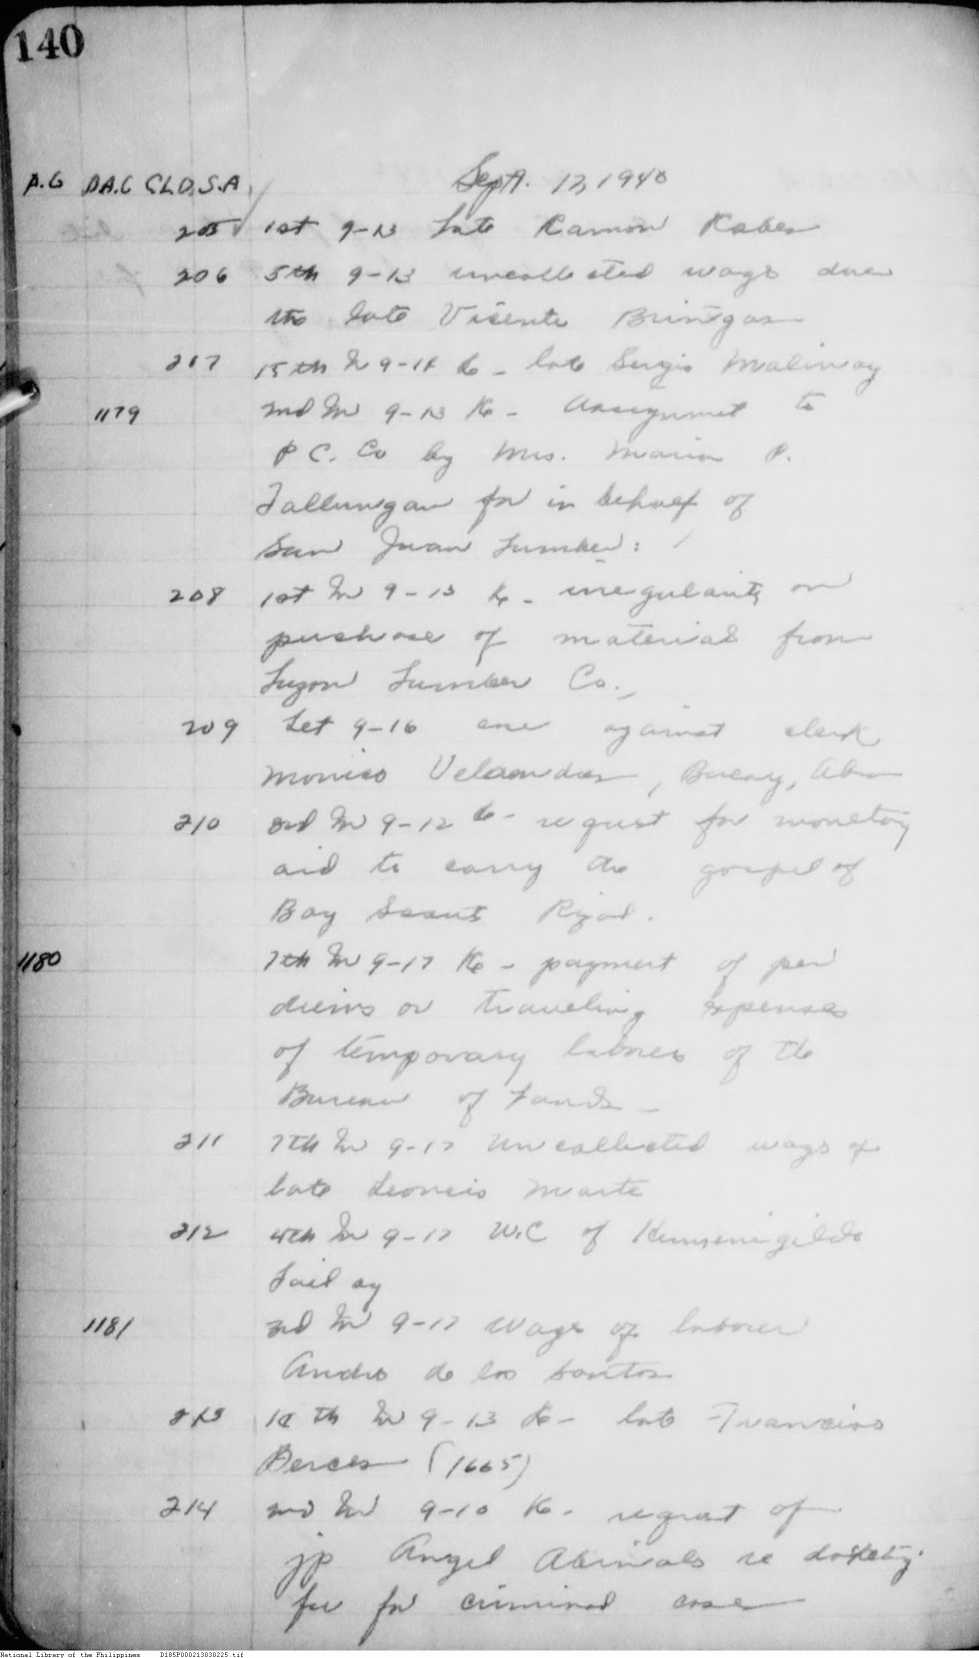 140
A.G DA.G CLD.S.A Sept. 17, 1940
205 1st 9-13 late Ramon
206 5th 9-13 uncollected wage due
the late Vicente Bringas
207 15th In 9-14 to - late Sergio Maliwag
1179 2nd In 9-13 to - Assignment to
P C. Co by Mrs. Maria P.
for in behalf of
San Juan Lumber:
208 1st In 9-13 to - irregularity on
purchase of material from
Luzon Lumber Co.,
209 Let 9-16 against clerk
, Bucay, Abra
210 3rd In 9-12 to - request for monetary
aid to carry the gospel of
Boy Scouts Rizal.
1180 7th In 9-17 to - payment of per
diems or traveling expenses
of temporary laborers of the
Bureau of Lands -
211 7th In 9-17 uncollected wage of
late Leoncio Marte
212 4th In 9-17 W.C of Hermenigildo
1181 3rd In 9-17 Wage of laborer
Andres de los Santos
213 In 9-13 to - late Francisco
Berces (1665)
214 2nd In 9-10 to - request of
jp Angel re docketing
fee for criminal case
National Library of the Philippines D185P000213030225.tif